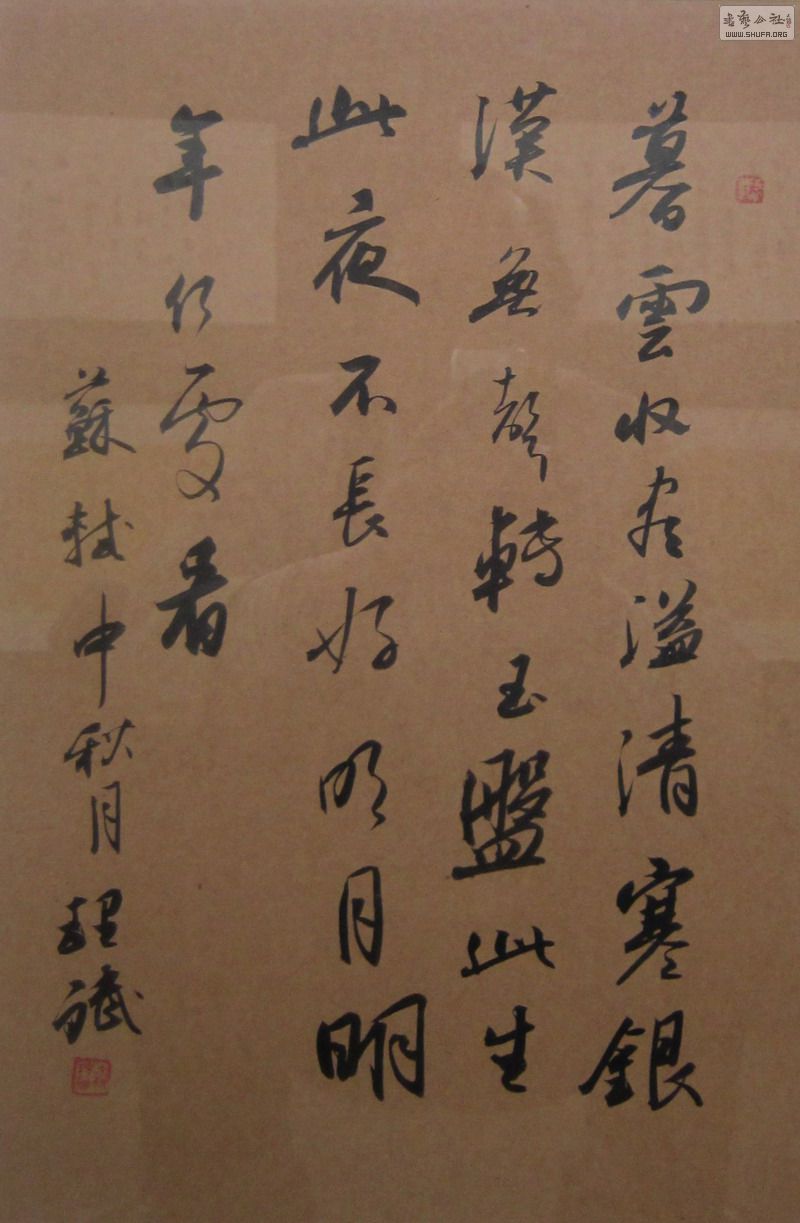 暮雲收尽溢清寒銀
漢無聲轉玉盤此生
此夜不長好明月明
年何處看
蘇軾中秋月
書藝公社
WWW.SHUFA.ORG